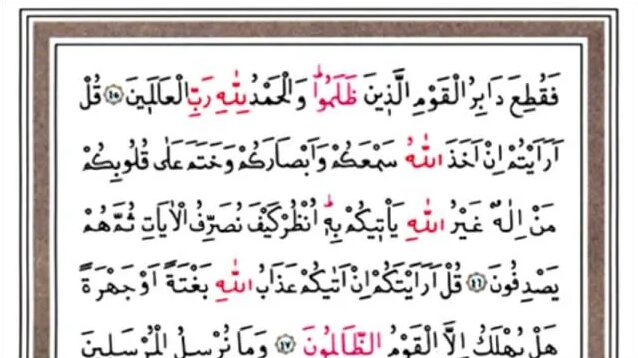 فَقُطِعَ دَابِرُ الْقَوْمِ الَّذ۪ينَ ظَلَمُواۜ وَالْحَمْدُ لِلّٰهِ رَبِّ الْعَالَم۪ينَ ﴿٤٥﴾ قُلْ
اَرَاَيْتُمْ اِنْ اَخَذَ اللّٰهُ سَمْعَكُمْ وَاَبْصَارَكُمْ وَخَتَمَ عَلٰى قُلُوبِكُمْ
مَنْ اِلٰهٌ غَيْرُ اللّٰهِ يَأْت۪يكُمْ بِه۪ۜ اُنْظُرْ كَيْفَ نُصَرِّفُ الْاٰيَاتِ ثُمَّ هُمْ
يَصْدِفُونَ ﴿٤٦﴾ قُلْ اَرَاَيْتَكُمْ اِنْ اَتٰيكُمْ عَذَابُ اللّٰهِ بَغْتَةً اَوْ جَهْرَةً
هَلْ يُهْلَكُ اِلَّا الْقَوْمُ الظَّالِمُونَ ﴿٤٧﴾ وَمَا نُرْسِلُ الْمُرْسَل۪ينَ